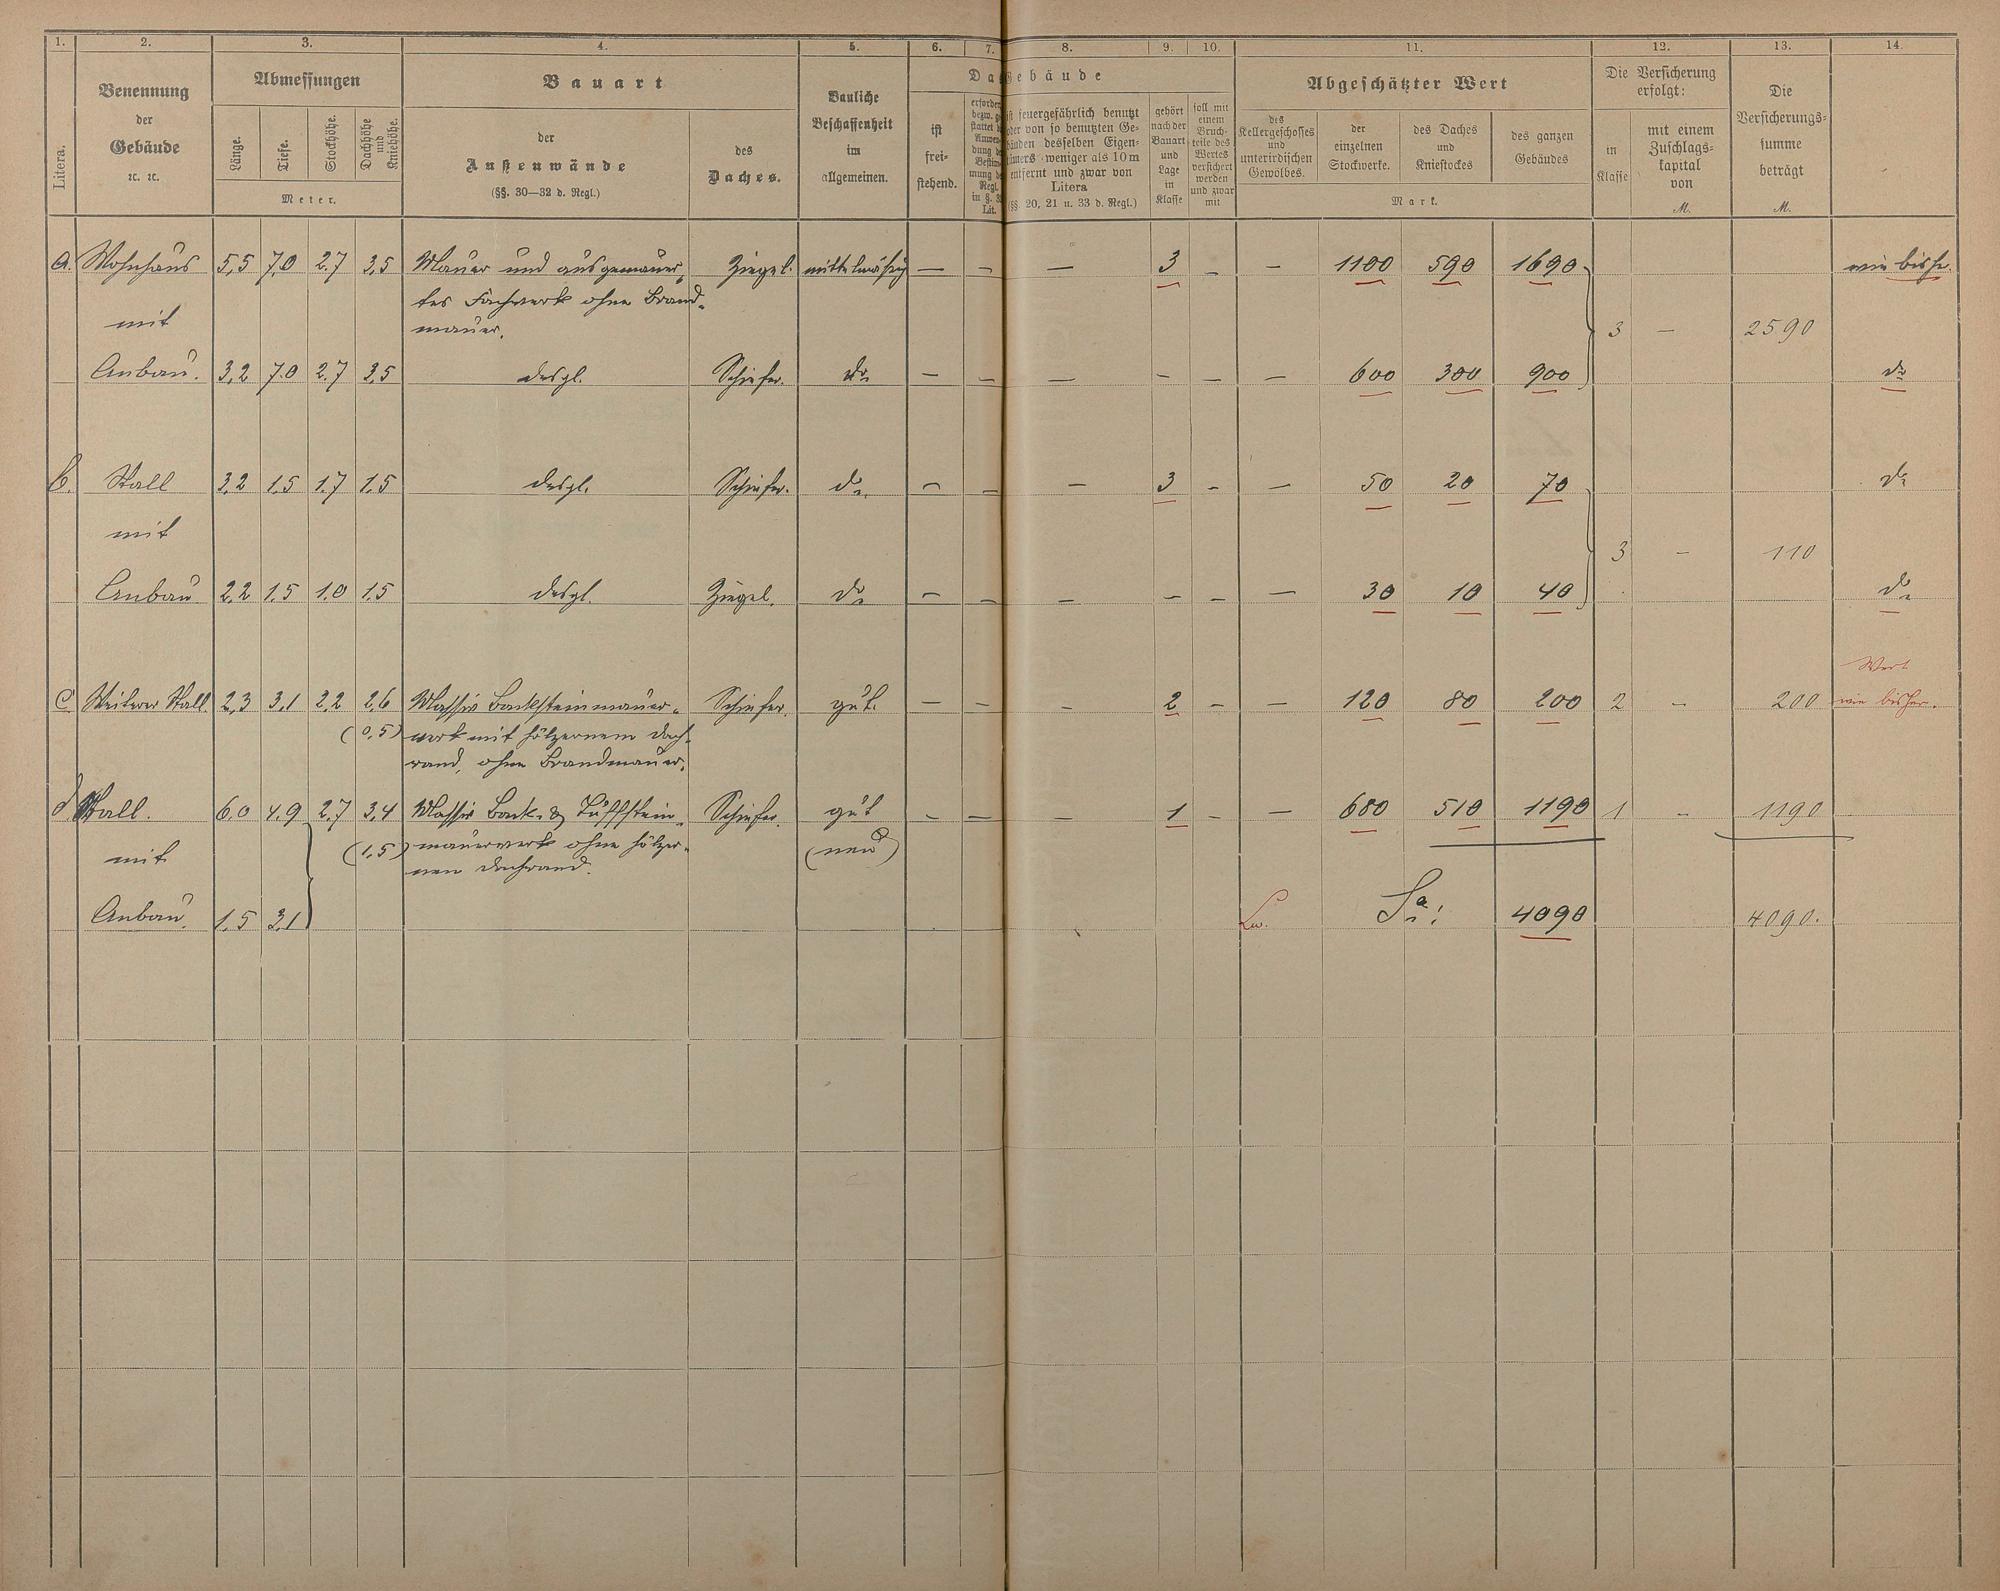 1. 2. 3. 4. 5. 6. 7. 8. 9. 10. 11. 12. 13. 14.
Litera.
Benennung
der
Gebäude
ꝛc. ꝛc.
Abmessungen
Länge.
Tiefe.
Stockhöhe.
Dachhöhe
und
Kniehöhe.
Meter.
Bauart
der
Außenwände
(§§. 30—32 d. Regl.)
des
Daches.
Bauliche
Beschaffenheit
im
allgemeinen.
Da Gebäude
ist
frei-
stehend.
Regl.
Lit.
ist feuergefährlich benutzt
oder von so benutzten Ge-
bäuden desselben Eigen-
tümers weniger als 10 m
entfernt und zwar von
Litera
(§§. 20, 21 u. 33 d. Regl.)
gehört
nach der
Bauart
und
Lage
in
Klasse
soll mit
einem
Bruch-
teile des
Wertes
versichert
werden
und zwar
mit
Abgeschätzter Wert
des
Kellergeschosses
und
unterirdischen
Gewölbes.
der
einzelnen
Stockwerke.
des Daches
und
Kniestockes
des ganzen
Gebäudes
Mark.
Die Versicherung
erfolgt:
in
Klasse
mit einem
Zuschlags-
kapital
von
M.
Die
Versicherungs-
summe
beträgt
M.
a. Wohnhaus 5,5 7,0 2,7 3,5 Mauer und ausgemauer- Ziegel. mittelmäßig — — — 3 — — 1100 590 1690 wie bish.
tes Fachwerk ohne Brand-
mit mauer. 3 — 2590
Anbau. 3,2 7,0 2,7 3,5 desgl. Schiefer. do. — — — — — — 600 300 900 do
b. Stall 3,2 1,5 1,7 1,5 desgl. Schiefer. do. — — — 3 — — 50 20 70 do
mit 3 — 110
Anbau 2,2 1,5 1,0 1,5 desgl. Ziegel. do. — — — — — — 30 10 40 do.
Wert
c. Weiterer Stall. 2,3 3,1 2,2 2,6 Massiv Backsteinmauer- Schiefer. gut. — — — 2 — — 120 80 200 2 — 200 wie bisher.
(0,5) werk mit hölzernem Dach-
wand, ohne Brandmauer.
d. Stall. 6,0 4,9 2,7 3,4 Massiv Back- & Tuffstein- Schiefer. gut — — — 1 — — 680 510 1190 1 — 1190
mit (1,5) mauerwerk ohne hölzer- (neu)
nen Dachwand.
Anbau. 1,5 3,1 Sa: 4090 4090.